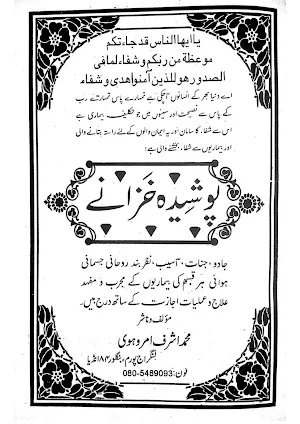 یا ایھا الناس قد جاءتکم
موعظة من ربکم وشفاء لمافی
الصدور ھو للذین آمنوا ھدی و شفاء
اے دنیا بھر کے انسانوں آچکی ہے تمہارے پاس تمہارے رب
کے پاس سے نصیحت اور سینوں میں جو تکلیف بیماری ہے
اس سے شفا کا سامان اور یہ ایمان والوں کے لئے راستہ بتانے والی
اور بیماریوں سے شفاء بخشنے والی ہے!
پوشیدہ خزانے
جادو، جنات، آسیب، نظر بند روحانی جسمانی
ہوائی ہر قسم کی بیماریوں کے مجرب و مفید
علاج و عملیات اجازت کے ساتھ درج ہیں۔
مؤلف و ناشر
محمد اشرف امروہوی
لنگراج پورم، بنگلور ۸۴ انڈیا
فون: 080-5489093